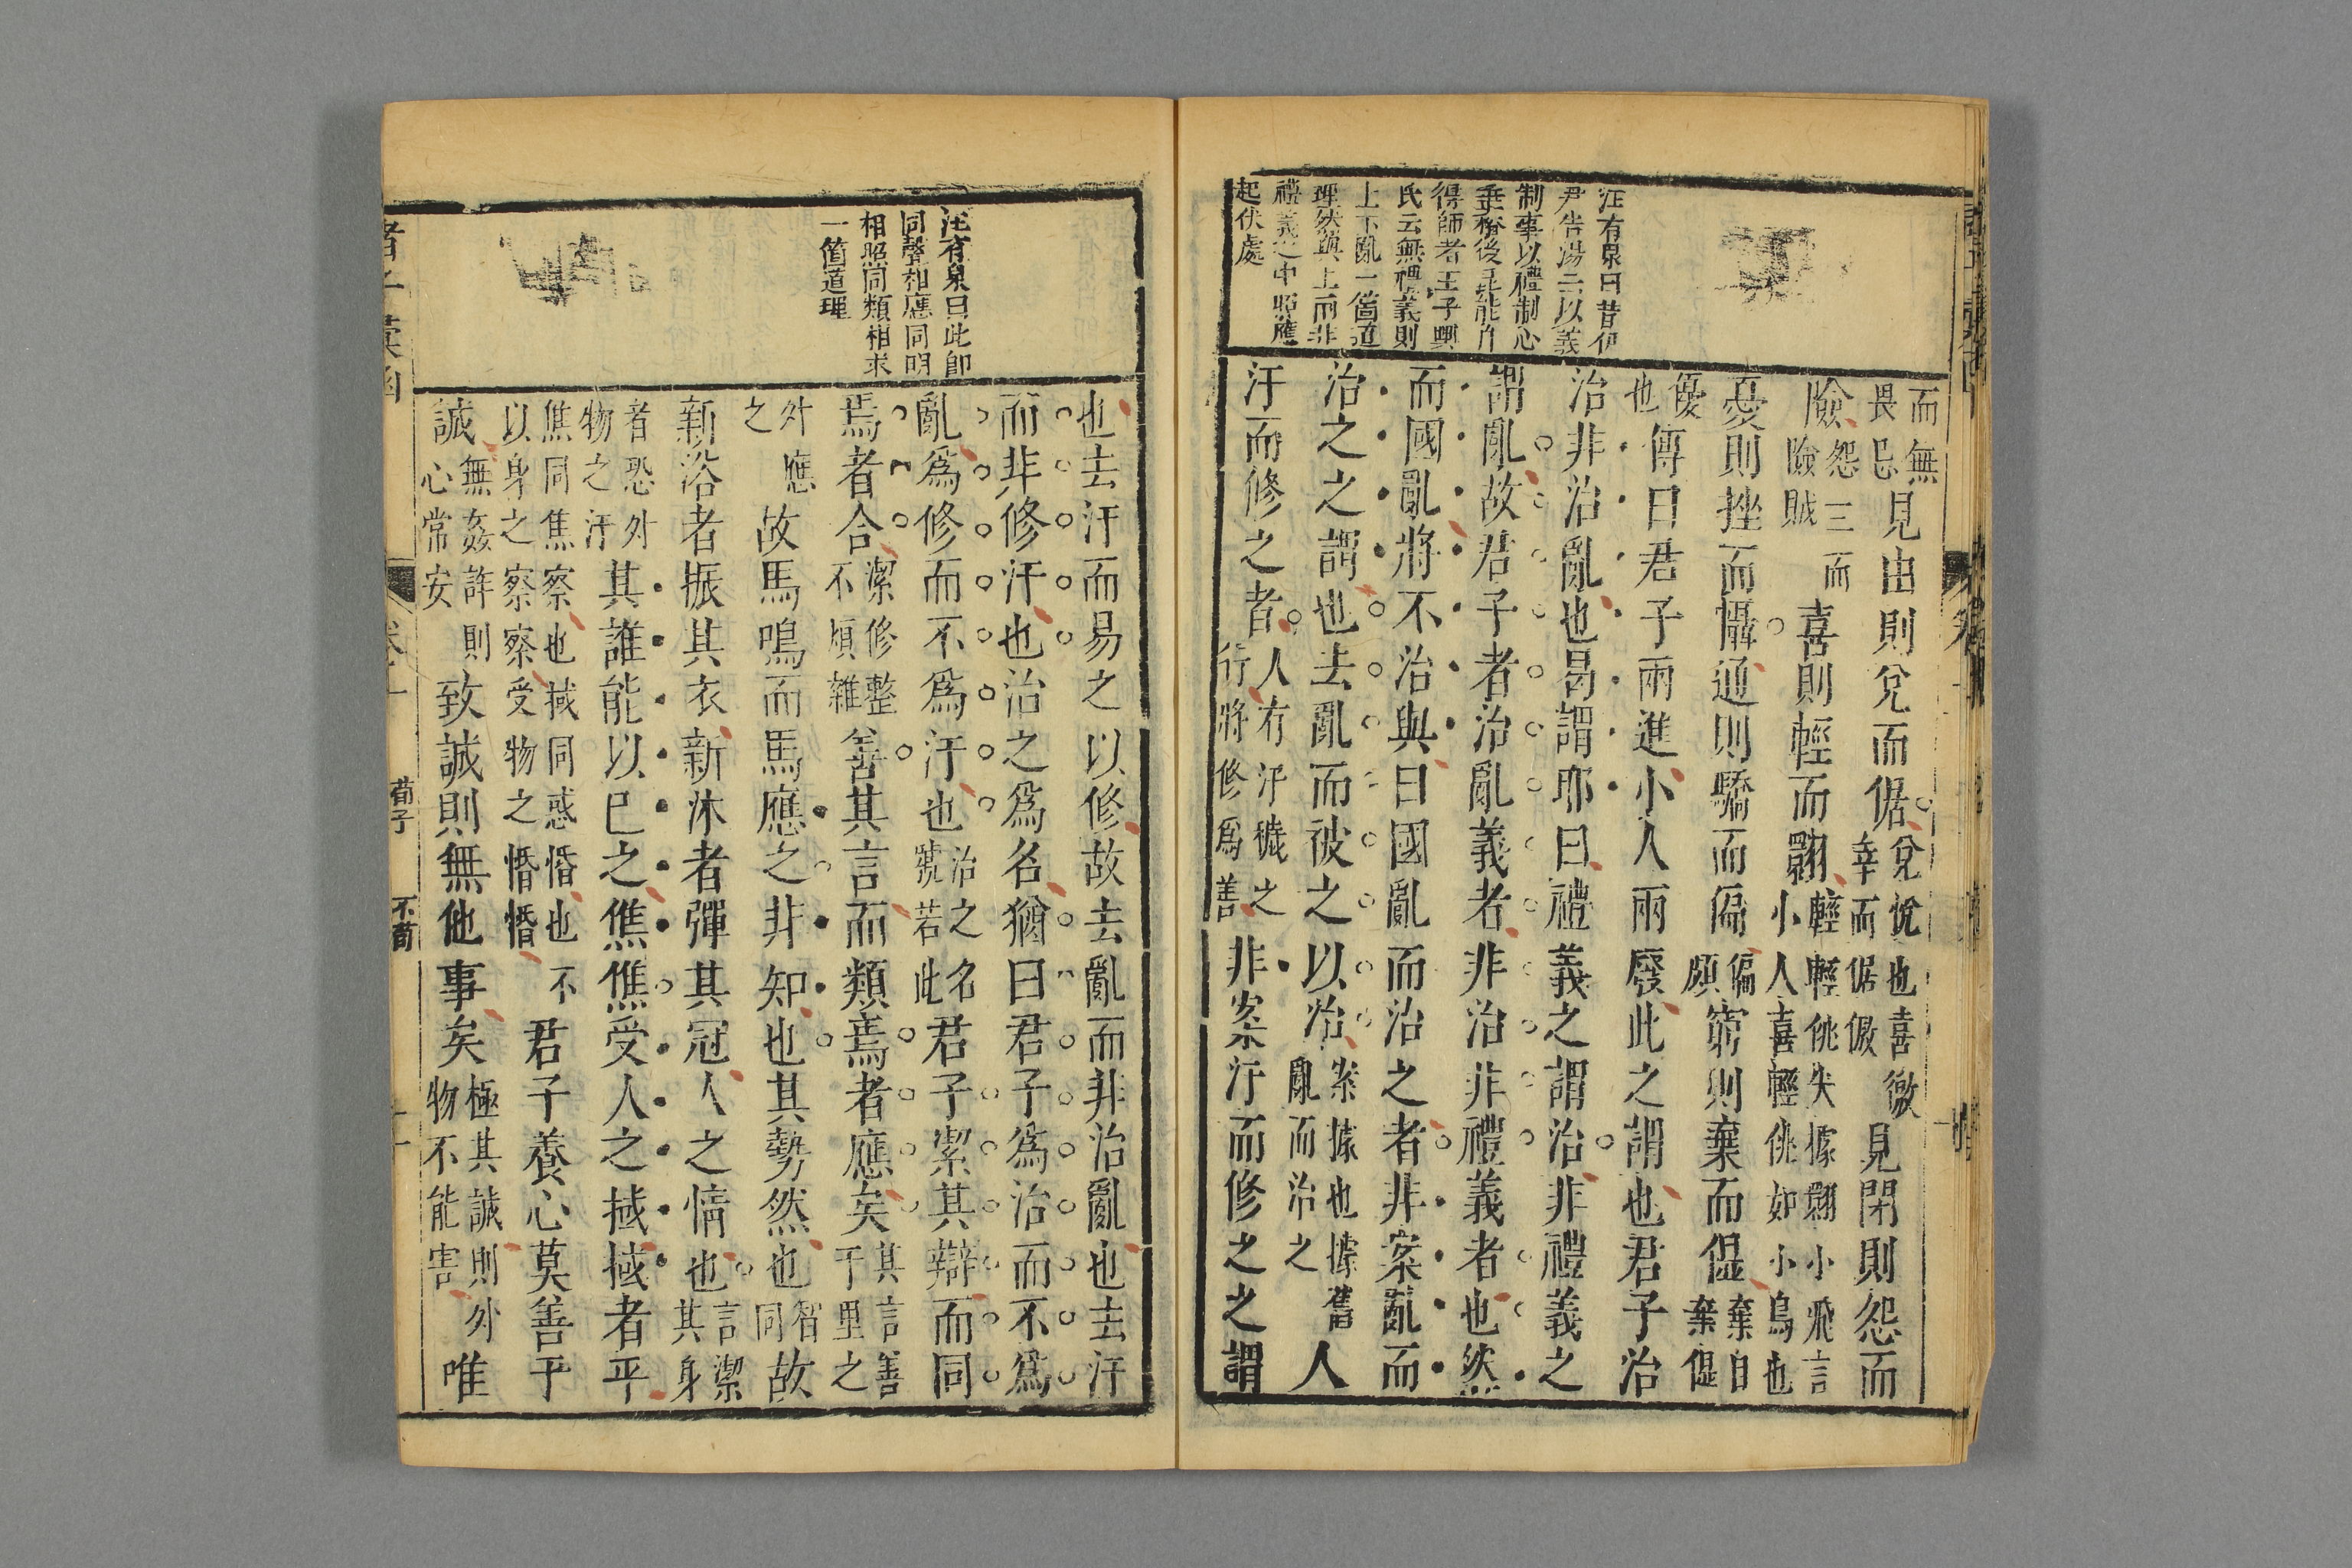 汪有泉曰昔伊
尹告湯云以義
制事以禮制心
垂裕後昆能自
得師者王子輿
氏云無禮義則
上下亂一箇道
理然與上而非
禮義之中照應
起伏處
而無畏忌見由則兌而倨兌悅也喜徼幸而倨傲見閉則怨而
險怨三而險賊喜則輕而翾輕輕佻失據翾小飛言小人喜輕佻如小鳥也
憂則挫而懾通則驕而偏偏頗窮則棄而儑棄自棄儑
優也傳曰君子兩進小人兩廢此之謂也君子治
治非治亂也曷謂耶曰禮義之謂治非禮義之
謂亂故君子者治亂義者非治非禮義者也然
而國亂將不治與曰國亂而治之者非案亂而
治之之謂也去亂而被之以治案據也據舊亂而治之人
汙而修之者人有汙穢之行將修爲善非案汙而修之之謂
汪有泉曰此即
同聲相應同明
相照同類相求
一箇道理
也去汙而易之以修故去亂而非治亂也去汙
而非修汙也治之爲名猶曰君子爲治而不爲
亂爲修而不爲汙也治之名號若此君子潔其辯而同
焉者合潔修整不煩雜善其言而類焉者應矣其言善千里之
外應之故馬鳴而馬應之非知也其勢然也智同故
新浴者振其衣新沐者彈其冠人之情也言潔其身
者恐外物之汙其誰能以已之僬僬受人之掝掝者乎
僬同焦察也掝同惑惛也不以身之察察受物之惛惛君子養心莫善于
誠無姦詐則心常安致誠則無他事矣極其誠則外物不能害唯
諸子彙函
卷十
荀子
不茍